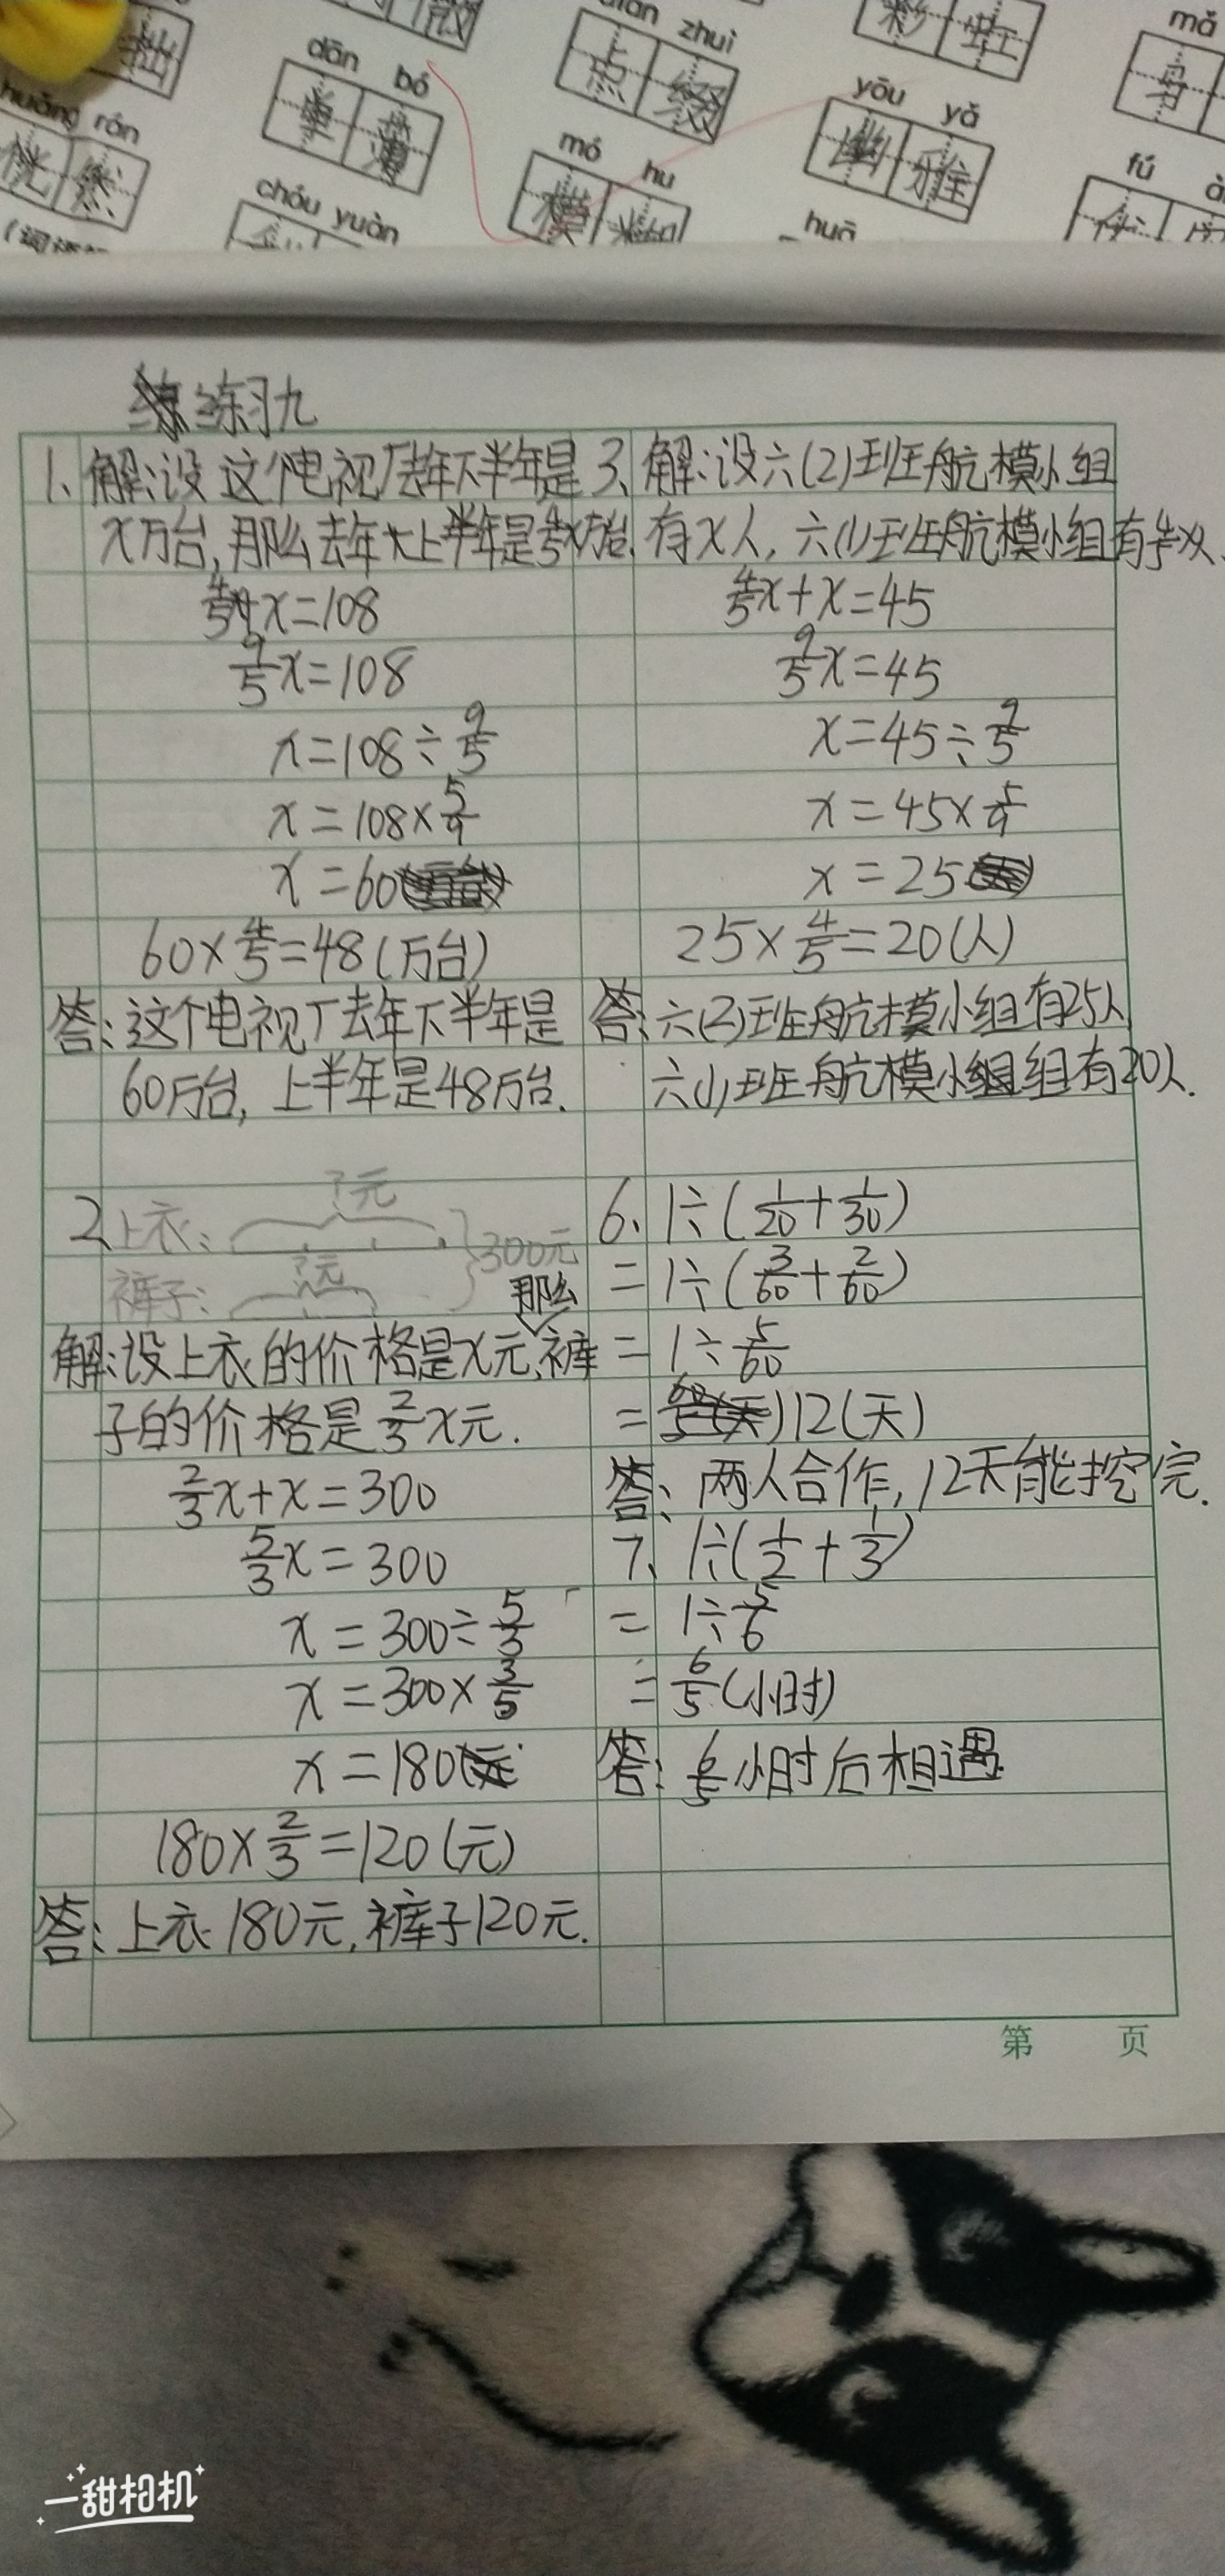 dān bó
diǎn zhuì
单薄
点缀
mó hu
模糊
yōu yǎ
幽雅
rán
然
chóu yuàn
huā
fú
练习九
1、解:设这个电视厂去年下半年是
x万台,那么去年上半年是4/5x万台.
4/5x+x=108
9/5x=108
x=108÷9/5
x=108×5/9
x=60
60×4/5=48(万台)
答:这个电视厂去年下半年是
60万台,上半年是48万台.
2、上衣: ?元
裤子: ?元
300元
解:设上衣的价格是x元,那么裤
子的价格是2/3x元.
2/3x+x=300
5/3x=300
x=300÷5/3
x=300×3/5
x=180
180×2/3=120(元)
答:上衣180元,裤子120元.
3、解:设六(2)班航模小组
有x人,六(1)班航模小组有4/5x人.
4/5x+x=45
9/5x=45
x=45÷9/5
x=45×5/9
x=25
25×4/5=20(人)
答:六(2)班航模小组有25人
六(1)班航模小组组有20人.
6、1÷(1/20+1/30)
=1÷(3/60+2/60)
=1÷5/60
=12(天)
答:两人合作,12天能挖完.
7、1÷(1/2+1/3)
=1÷5/6
=6/5(小时)
答:6/5小时后相遇.
第 页
一甜相机